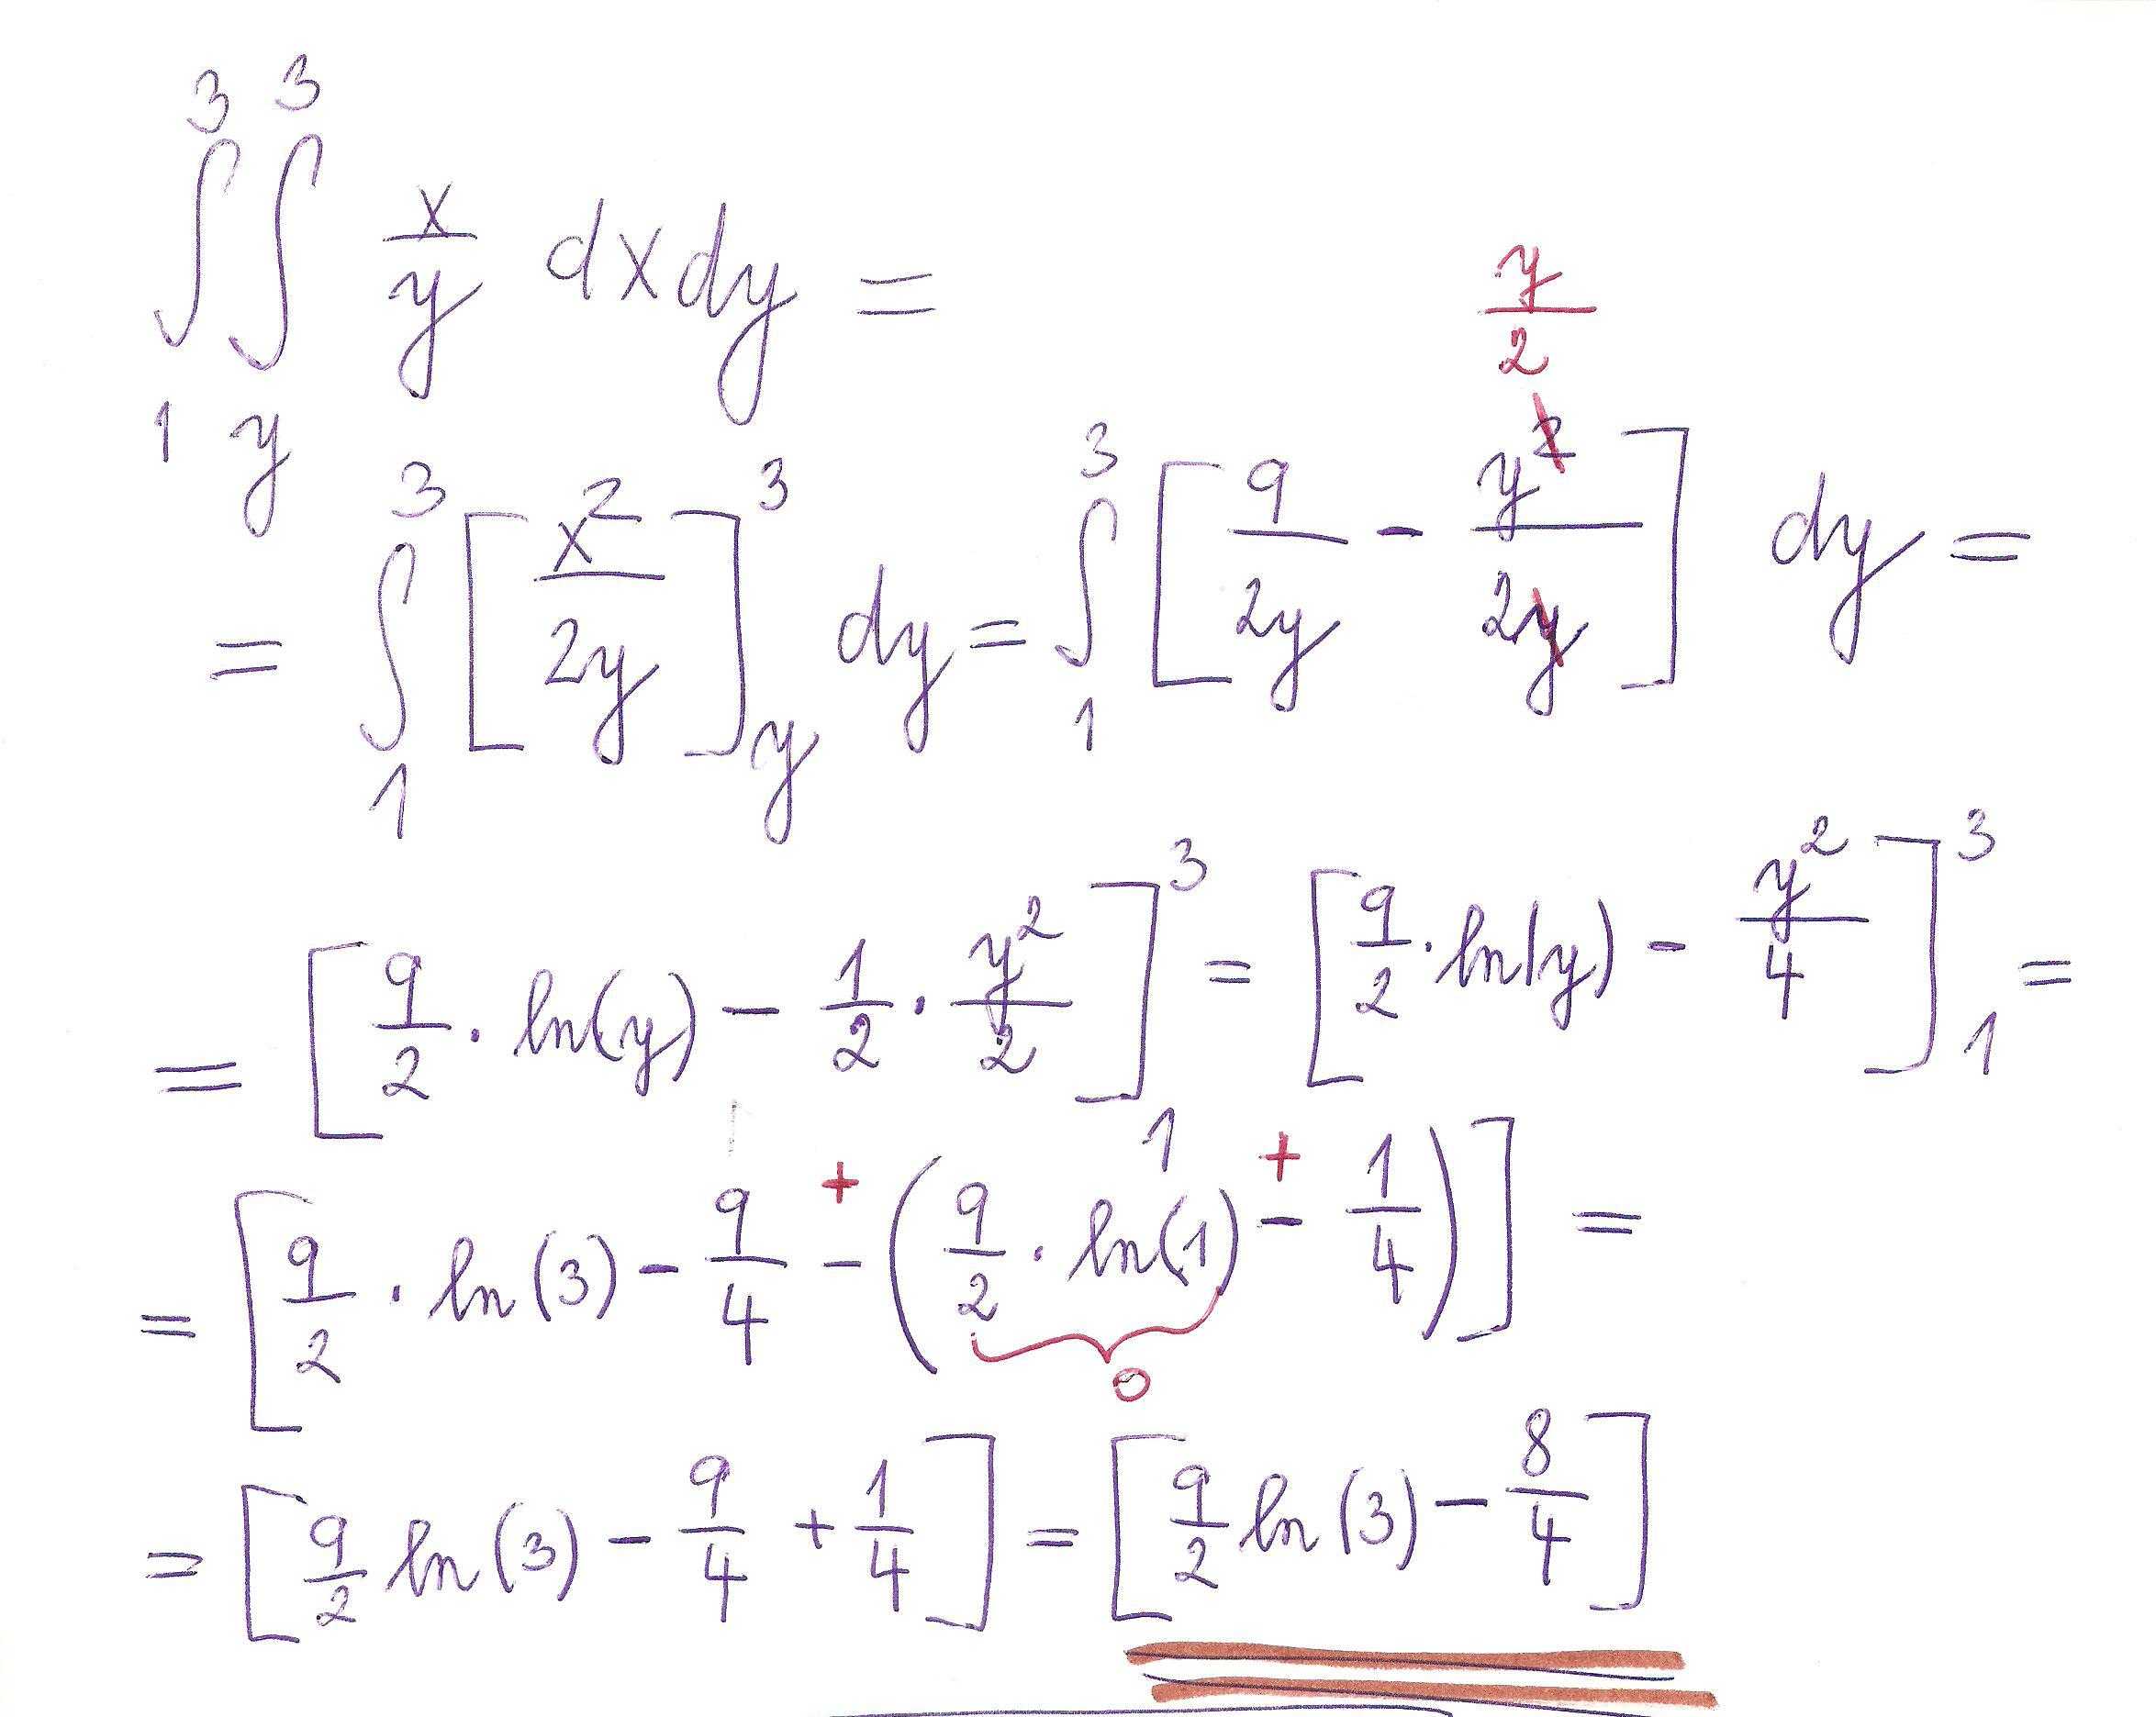 ∫₁³ ∫_y³ x/y dx dy =
= ∫₁³ [x²/2y]_y³ dy = ∫₁³ [9/2y - y²/2y] dy =
y/2
= [9/2 · ln(y) - 1/2 · y²/2]₁³ = [9/2 · ln(y) - y²/4]₁³ =
+ +
= [9/2 · ln(3) - 9/4 - (9/2 · ln(1) - 1/4)] =
0
= [9/2 ln(3) - 9/4 + 1/4] = [9/2 ln(3) - 8/4]